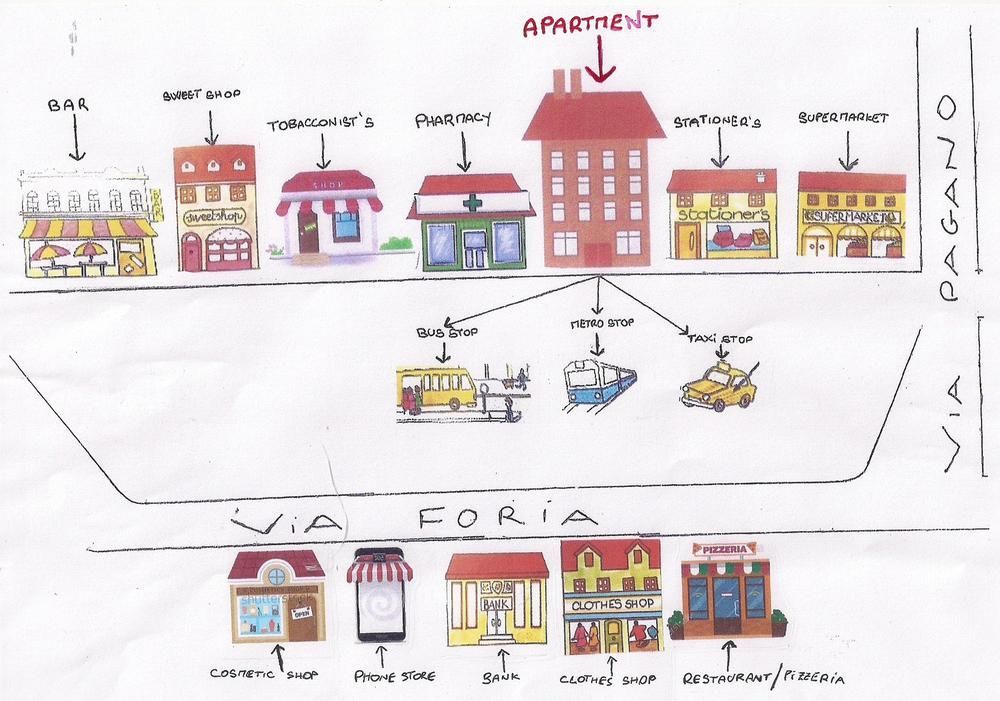 APARTMENT
BAR
SWEET SHOP
TOBACCONIST'S
PHARMACY
STATIONER'S
SUPERMARKET
BAR
SHOP
sweetshop
stationer's
SUPERMARKET
VIA PAGANO
BUS STOP
METRO STOP
TAXI STOP
VIA FORIA
PIZZERIA
shutterstock
OPEN
BANK
CLOTHES SHOP
COSMETIC SHOP
PHONE STORE
BANK
CLOTHES SHOP
RESTAURANT/PIZZERIA